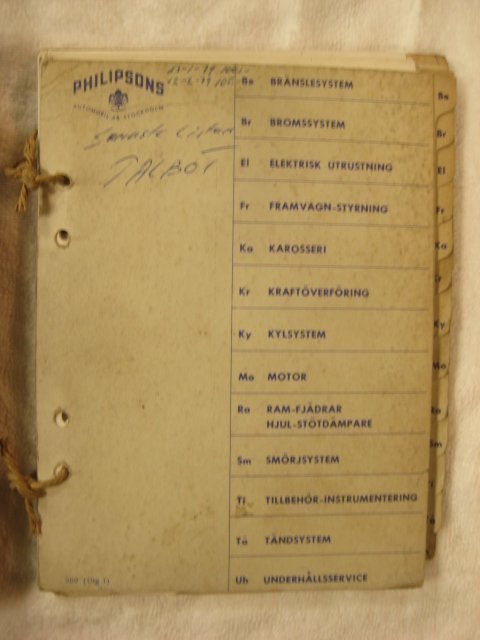 PHILIPSONS
AUTOMOBIL AB STOCKHOLM
Senaste Listan
TALBOT
Be BRÄNSLESYSTEM
Br BROMSSYSTEM
El ELEKTRISK UTRUSTNING
Fr FRAMVAGN-STYRNING
Ka KAROSSERI
Kr KRAFTÖVERFÖRING
Ky KYLSYSTEM
Mo MOTOR
Ra RAM-FJÄDRAR
HJUL-STÖTDÄMPARE
Sm SMÖRJSYSTEM
Ti TILLBEHÖR-INSTRUMENTERING
Tä TÄNDSYSTEM
Uh UNDERHÅLLSSERVICE
Be
Br
El
Fr
Ka
Kr
Ky
Mo
Ra
Sm
Ti
Tä